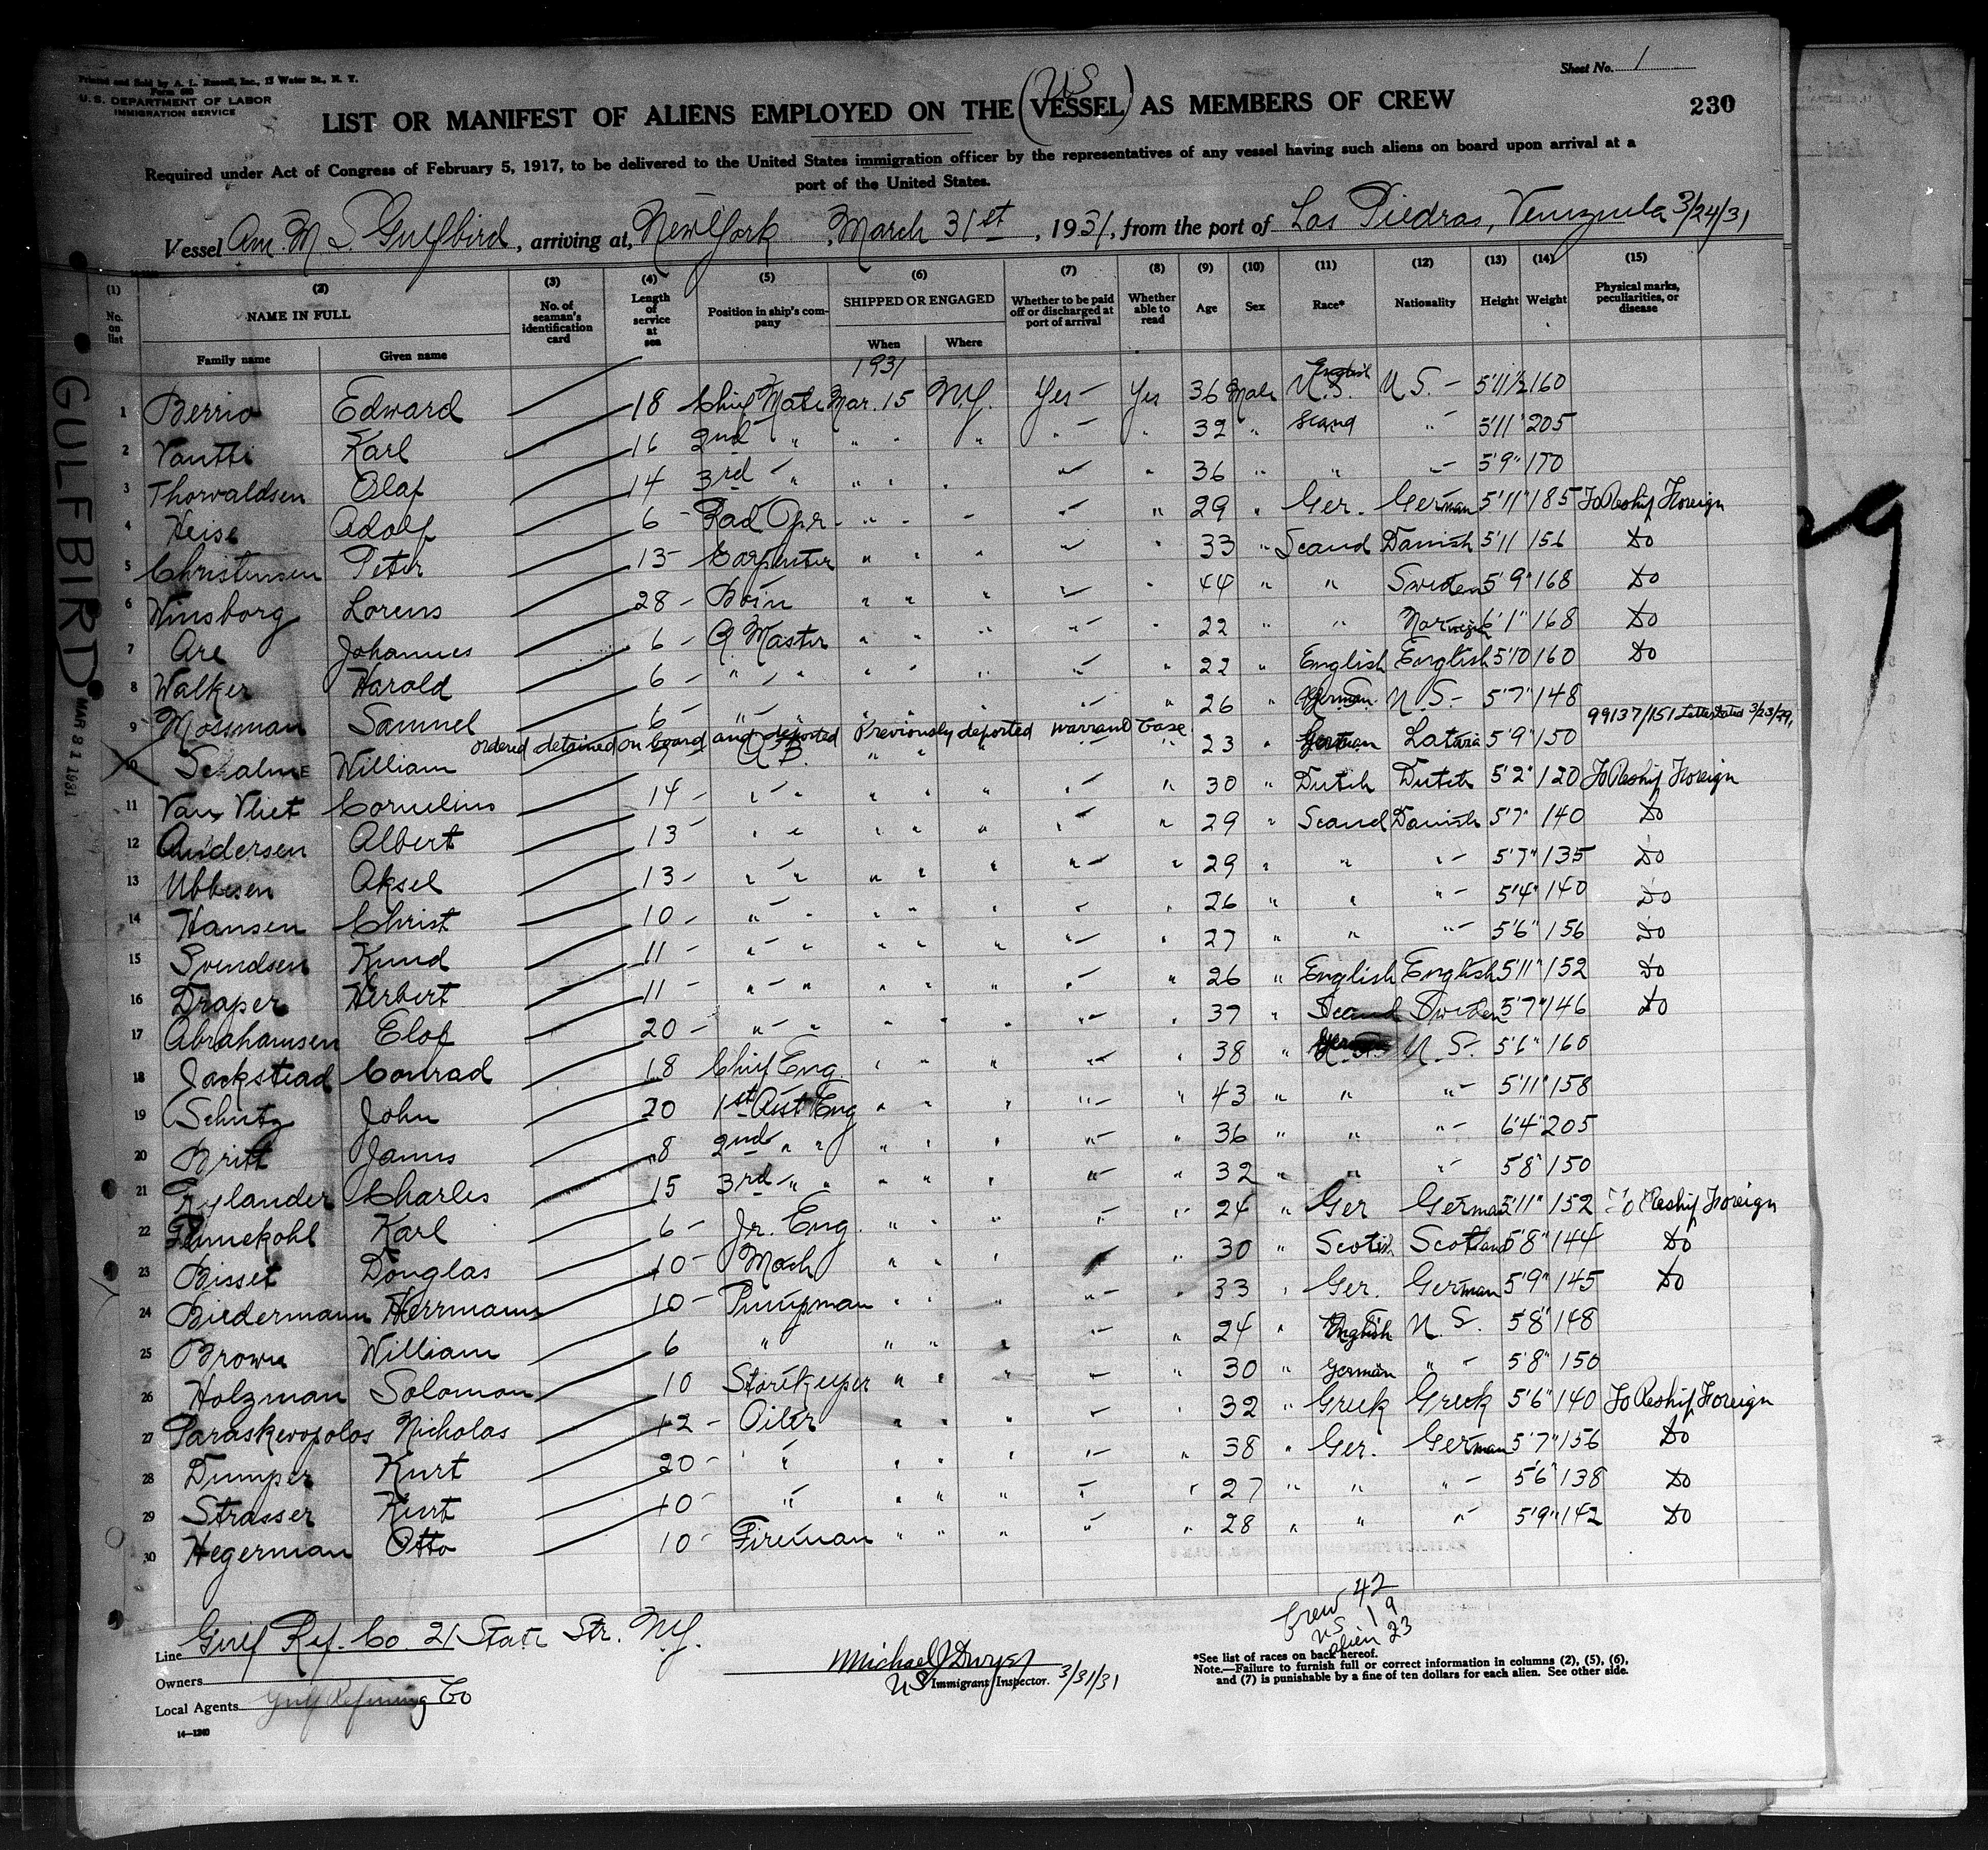 Printed and Sold by A. L. Russell, Inc., 15 Water St., N. Y.
Form 680
U. S. DEPARTMENT OF LABOR
IMMIGRATION SERVICE
Sheet No. 1
US
LIST OR MANIFEST OF ALIENS EMPLOYED ON THE (VESSEL) AS MEMBERS OF CREW
230
Required under Act of Congress of February 5, 1917, to be delivered to the United States immigration officer by the representatives of any vessel having such aliens on board upon arrival at a
port of the United States.
Vessel Am. M. S. Gulfbird, arriving at New York, March 31st, 1931, from the port of Las Piedras, Venzuela 3/24/31
(1) (2) (3) (4) (5) (6) (7) (8) (9) (10) (11) (12) (13) (14) (15)
No. on list NAME IN FULL No. of seaman's identification card Length of service at sea Position in ship's company SHIPPED OR ENGAGED Whether to be paid off or discharged at port of arrival Whether able to read Age Sex Race* Nationality Height Weight Physical marks, peculiarities, or disease
Family name Given name When Where
1931
1 Berrio Edward 18 Chief Mate Mar. 15 N.Y. Yes - Yes 36 Male U.S. English U.S. - 5'11½ 160
2 Vantti Karl 16 2nd " " " " " 32 " Scand " 5'11" 205
3 Thorvaldsen Olaf 14 3rd " " " " " 36 " " " 5'9" 170
4 Heise Adolf 6 - Rad Opr. " " " " 29 " Ger. German 5'11" 185 To Reship Foreign
5 Christensen Peter 13 - Carpenter " " " " " 33 " Scand Danish 5'11 156 Do
6 Winsborg Lorens 28 - Bos'n " " " " " 44 " " Sweden 5'9" 168 Do
7 Are Johannes 6 - Q. Master " " " " " 22 " " Norwegian 6'1" 168 Do
8 Walker Harold 6 - " " " " " " 22 " English English 5'10 160 Do
9 Mossman Samuel 6 - " " " " " " 26 " German U.S. - 5'7" 148
ordered detained on board and deported Previously deported warrant case 99137/151 Letter dated 3/23/29,
10 Schalme William A.B. " " " " " 23 " German Latvia 5'9" 150
11 Van Vliet Cornelius 14 - " " " " " " 30 " Dutch Dutch 5'2" 120 To Reship Foreign
12 Andersen Albert 13 - " " " " " " 29 " Scand Danish 5'7" 140 Do
13 Ubbesen Aksel 13 - " " " " " " 29 " " " 5'7" 135 Do
14 Hansen Christ 10 - " " " " " " 26 " " " 5'4" 140 Do
15 Svendsen Knud 11 - " " " " " " 27 " " " 5'6" 156 Do
16 Draper Herbert 11 - " " " " " " 26 " English English 5'11" 152 Do
17 Abrahamsen Elof 20 - " " " " " " 37 " Scand Sweden 5'7" 146 Do
18 Jackstead Conrad 18 Chief Eng. " " " " " 38 " U.S. 5'6" 160
19 Schutz John 20 1st Asst Eng " " " " " 43 " " " 5'11" 158
20 Britt James 8 2nd " " " " " " " 36 " " " 6'4" 205
21 Rylander Charles 15 3rd " " " " " " " 32 " " " 5'8" 150
22 Karl 6 - Jr. Eng. " " " " " 24 " Ger German 5'11" 152 To Reship Foreign
23 Bisset Douglas 10 - Mach " " " " 30 " Scotish Scotland 5'8" 144 Do
24 Biedermann Herrmann 10 - Pumpman " " " " " 33 " Ger. German 5'9" 145 Do
25 Brown William 6 " " " " " " 24 " English U.S. 5'8" 148
26 Holzman Solomon 10 Storekeeper " " " " " 30 " German " 5'8" 150
27 Paraskevopolos Nicholas 12 - Oiler " " " " " 32 " Greek Greek 5'6" 140 To Reship Foreign
28 Dumper Kurt 20 - " " " " " " 38 " Ger. German 5'7" 156 Do
29 Strasser Kurt 10 - " " " " " " 27 " " " 5'6" 138 Do
30 Hegerman Otto 10 - Fireman " " " " " 28 " " " 5'9" 142 Do
GULFBIRD
MAR 31 1931
Crew 42
US 19
alien 23
Line Gulf Ref. Co. 21 State Str. N.Y.
Owners
Local Agents Gulf Refining Co
14—1240
Michael J Dwyer
US Immigrant Inspector. 3/31/31
*See list of races on back hereof.
Note.—Failure to furnish full or correct information in columns (2), (5), (6),
and (7) is punishable by a fine of ten dollars for each alien. See other side.